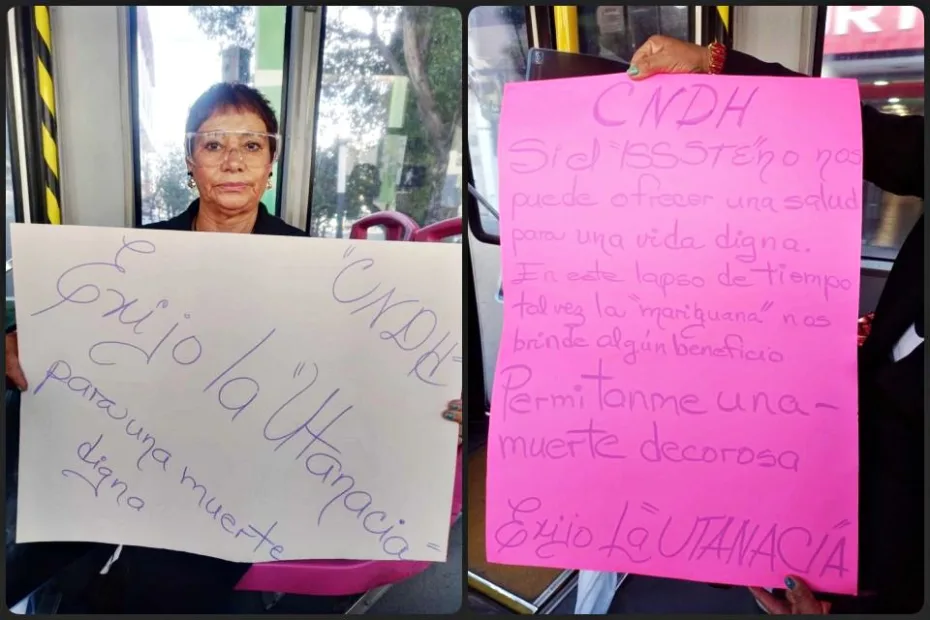 "CNDH"
Exijo la "Utanacia"
para una muerte
digna
CNDH
Si el "ISSSTE" no nos
puede ofrecer una salud
para una vida digna.
En este lapso de tiempo
tal vez la "mariguana" nos
brinde algún beneficio
Permitanme una-
muerte decorosa
Exijo La "UTANACÍA"
RT